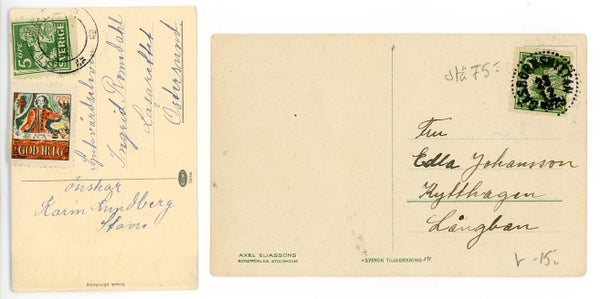 5 ÖRE
SVERIGE
GOD JUL
Sjukvårdselev
Ingrid Romdahl
Lasarettet
Östersund
önskar
Karin Lundberg
Stavre
stå 75:-
Fru
Edla Johansson
Kytthagen
Långban
AXEL ELIASSONS
KONSTFÖRLAG, STOCKHOLM
SVENSK TILLVERKNING
v -15:-